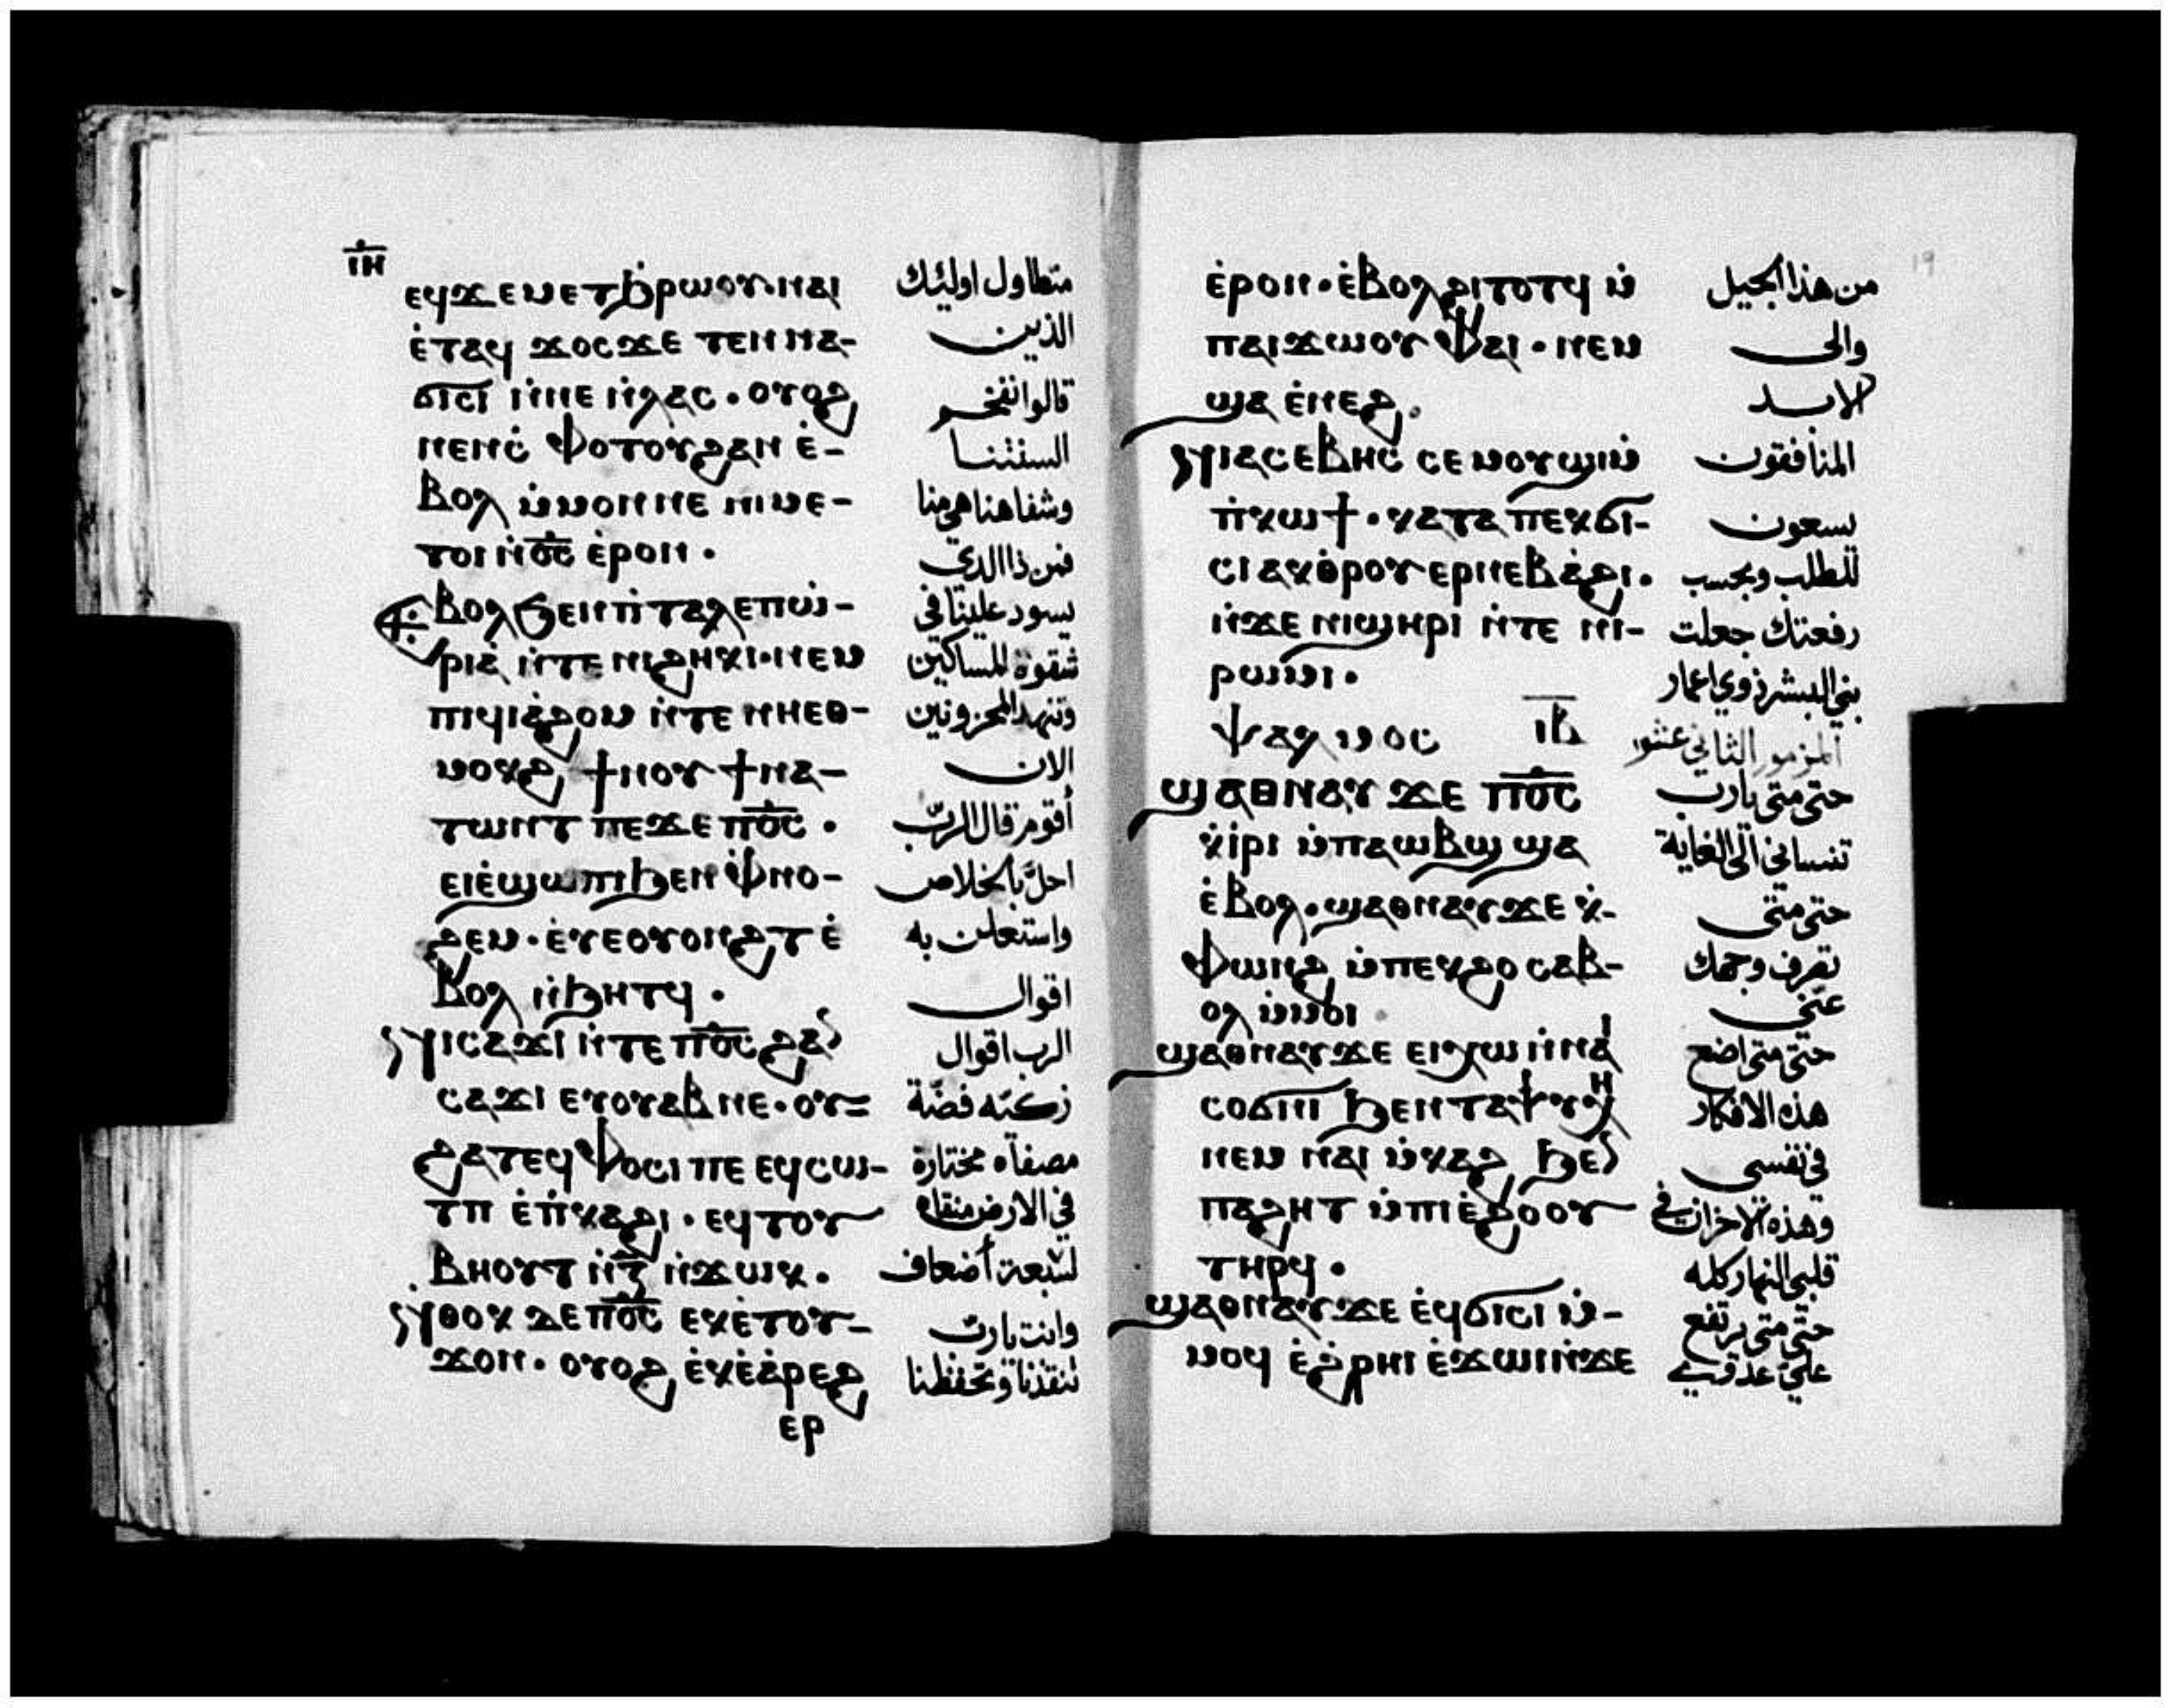 ⲓⲏ
ⲉϥϫⲉⲙⲉⲧϧⲣⲱⲟⲩ· ⲛⲁⲓ متطاول اوليئك
ⲉ̀ⲧⲁϥ ϫⲟⲥ ϫⲉ ⲧⲉⲛⲛⲁ- الذين
ϭⲓⲥⲓ ⲙ̀ⲡⲉⲛⲗⲁⲥ · ⲟⲩⲟϩ قالوا نفخر
ⲛⲉⲛⲥ̀ⲫⲟⲧⲟⲩϩⲁⲛ ⲉ̀- السنتنا
ⲃⲟⲗ ⲙ̀ⲙⲟⲛ ⲛⲉ ⲛⲓⲙ ⲉ- وشفاهنا هي منا
ⲧⲟⲓ ⲛ̀ⲟ̅ⲥ̅ ⲉ̀ⲣⲟⲛ · فمن ذا الدي
ⲃⲟⲗ ϧⲉⲛ ⲡ̀ⲧⲁⲗⲉⲡⲱ- يسود علينا في
ⲣⲓⲁ̀ ⲛ̀ⲧⲉ ⲛⲓϩⲏⲕⲓ· ⲛⲉⲙ شقوة المساكين
ⲡⲓϥⲓⲁ̀ϩⲟⲙ ⲛ̀ⲧⲉ ⲛⲏⲉⲑ- وتنهد المحزونين
ⲙⲟⲕϩ ϯⲛⲟⲩ ϯⲛⲁ- الان
ⲧⲱⲛⲧ ⲡⲉϫⲉ ⲡ̅ⲟ̅ⲥ̅ · أقوم قال الرب
ⲉⲓⲉ̀ϣⲱⲡⲓ ϧⲉⲛ ⲫ̀ⲛⲟ- احل بالخلاص
ϩⲉⲙ· ⲉⲩⲉⲟⲩⲟⲛϩⲧ ⲉ̀ واستعلن به
ⲃⲟⲗ ⲛ̀ϧⲏⲧϥ · اقوال
ⲛⲓⲥⲁϫⲓ ⲛ̀ⲧⲉ ⲡ̅ⲟ̅ⲥ̅ ϩⲁⲛ الرب اقوال
ⲥⲁϫⲓ ⲉⲩⲟⲩⲁⲃ ⲛⲉ· ⲟⲩ- زكيه فضة
ϩⲁⲧ ⲉϥⲫⲟⲥⲓ ⲡⲉ ⲉϥⲥⲱ- مصفاه مختارة
ⲧⲡ ⲉ̀ⲡ̀ⲕⲁϩⲓ · ⲉϥⲧⲟⲩ في الارض منقاه
ⲃⲏⲟⲩⲧ ⲛ̀ⲍ̅ ⲛ̀ϫⲱⲕ · لسبعة أضعاف
ⲛⲑⲟⲕ ⲇⲉ ⲡ̅ⲟ̅ⲥ̅ ⲉⲕⲉ̀ⲧⲟⲩ- وانت يارب
ϫⲟⲛ· ⲟⲩⲟϩ ⲉ̀ⲕⲉ̀ⲁ̀ⲣⲉϩ تنقذنا وتحفظنا
ⲉⲣ
19
ⲉ̀ⲣⲟⲛ · ⲉ̀ⲃⲟⲗϩⲓⲧⲟⲧϥ ⲙ̀ من هذا الجيل
ⲡⲁⲓϫⲱⲟⲩ ⲫⲁⲓ · ⲛⲉⲙ والى
ϣⲁ ⲉ̀ⲛⲉϩ· الابد
ⲛⲓⲁⲥⲉⲃⲏⲥ ⲥⲉⲙⲟⲩϣⲓ ⲙ̀ المنافقون
ⲡ̀ⲕⲱϯ· ⲕⲁⲧⲁ ⲡⲉⲕϭⲓ- يسعون
ⲥⲓ ⲁⲕⲑⲣⲟⲩⲉⲣⲡⲉⲃⲁ̀ϩⲓ· للطلب وبحسب
ⲛ̀ϫⲉ ⲛⲓϣⲏⲣⲓ ⲛ̀ⲧⲉ ⲛⲓ- رفعتك جعلت
ⲣⲱⲙⲓ · بني البشر ذوي اعمار
ⲯⲁⲗⲙⲟⲥ ⲓ̅ⲃ̅ المزمور الثاني عشر
ϣⲁⲑⲛⲁⲩ ϫⲉ ⲡ̅ⲟ̅ⲥ̅ حتى متى يارب
ⲕ̀ⲓ̀ⲣⲓ ⲙ̀ⲡⲁⲱⲃϣ ϣⲁ تنساني الى الغاية
ⲉ̀ⲃⲟⲗ· ϣⲁⲑⲛⲁⲩ ϫⲉ ⲕ̀- حتى متى
ⲫⲱⲛϩ ⲙ̀ⲡⲉⲕϩⲟ ⲥⲁⲃ- تصرف وجهك
ⲟⲗ ⲙ̀ⲙⲟⲓ عني
ϣⲁⲑⲛⲁⲩ ϫⲉ ⲉⲓⲭⲱ ⲛ̀ⲛⲁⲓ حتى متى اضع
ⲥⲟϭⲛⲓ ϧⲉⲛ ⲧⲁⲯⲩⲭⲏ هذه الافكار
ⲛⲉⲙ ⲛⲁⲓ ⲙ̀ⲕⲁϩ ϧⲉⲛ في نفسي
ⲡⲁϩⲏⲧ ⲙ̀ⲡⲓⲉ̀ϩⲟⲟⲩ وهذه الاحزان في
ⲧⲏⲣϥ · قلبي النهار كله
ϣⲁⲑⲛⲁⲩ ϫⲉ ⲉ̀ϥϭⲓⲥⲓ ⲛ̀- حتى متى يرتفع
ⲙⲟϥ ⲉ̀ϩ̀ⲣⲏⲓ ⲉ̀ϫⲱⲓ ⲛ̀ϫⲉ علي عدوي